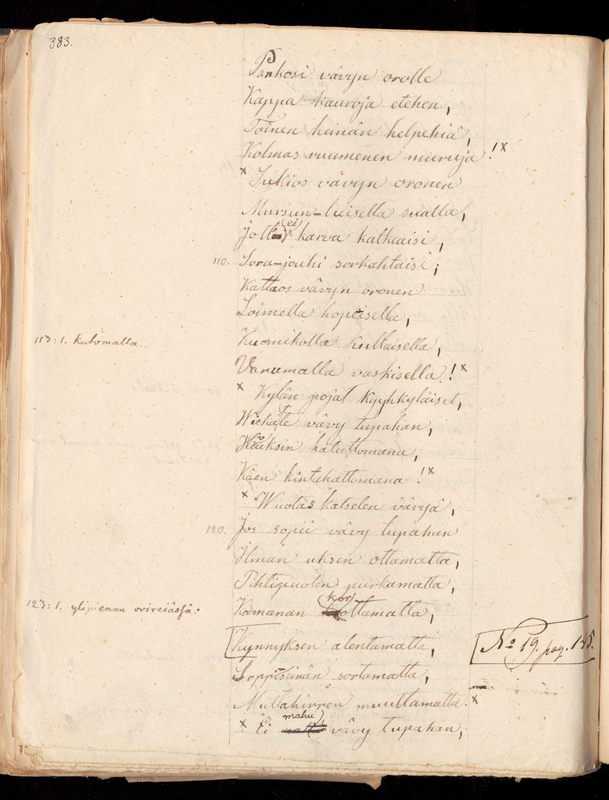 383.
Panhosi vävyn orolle
Kappa kauroja etehen,
Toinen heinän helpehiä,
Kolmas ruumenen muruja!x
x Sukios vävyn oronen
Mursun-luisella sualla,
Jott' ei karva katkeaisi,
110. Sora-jouhi sorkahtaisi;
Kattaos vävyn oronen
Loimella hopeisella,
Kuomikolla kultaisella,
113: 1. kutomalla.
Vanumalla vaskisella!x
x Kylän pojat kyyhkyläiset,
Wiekäte vävy tupahan,
Hiuksin hatuttomana,
Käen kintahattomana!x
x Wuotas katselen vävyä,
120. Jos sopii vävy tupahan
Ilman uksen ottamatta,
Pihtipuolen purkamatta,
Kamanan kohottamatta,
123: 1. ylipienan ovireiässä.
Kynnyksen alentamatta,
No 19. pag. 145.
Loppiseinän sortamatta,
Multahirren muuttamatta.x
x Ei mahu vävy tupahan,